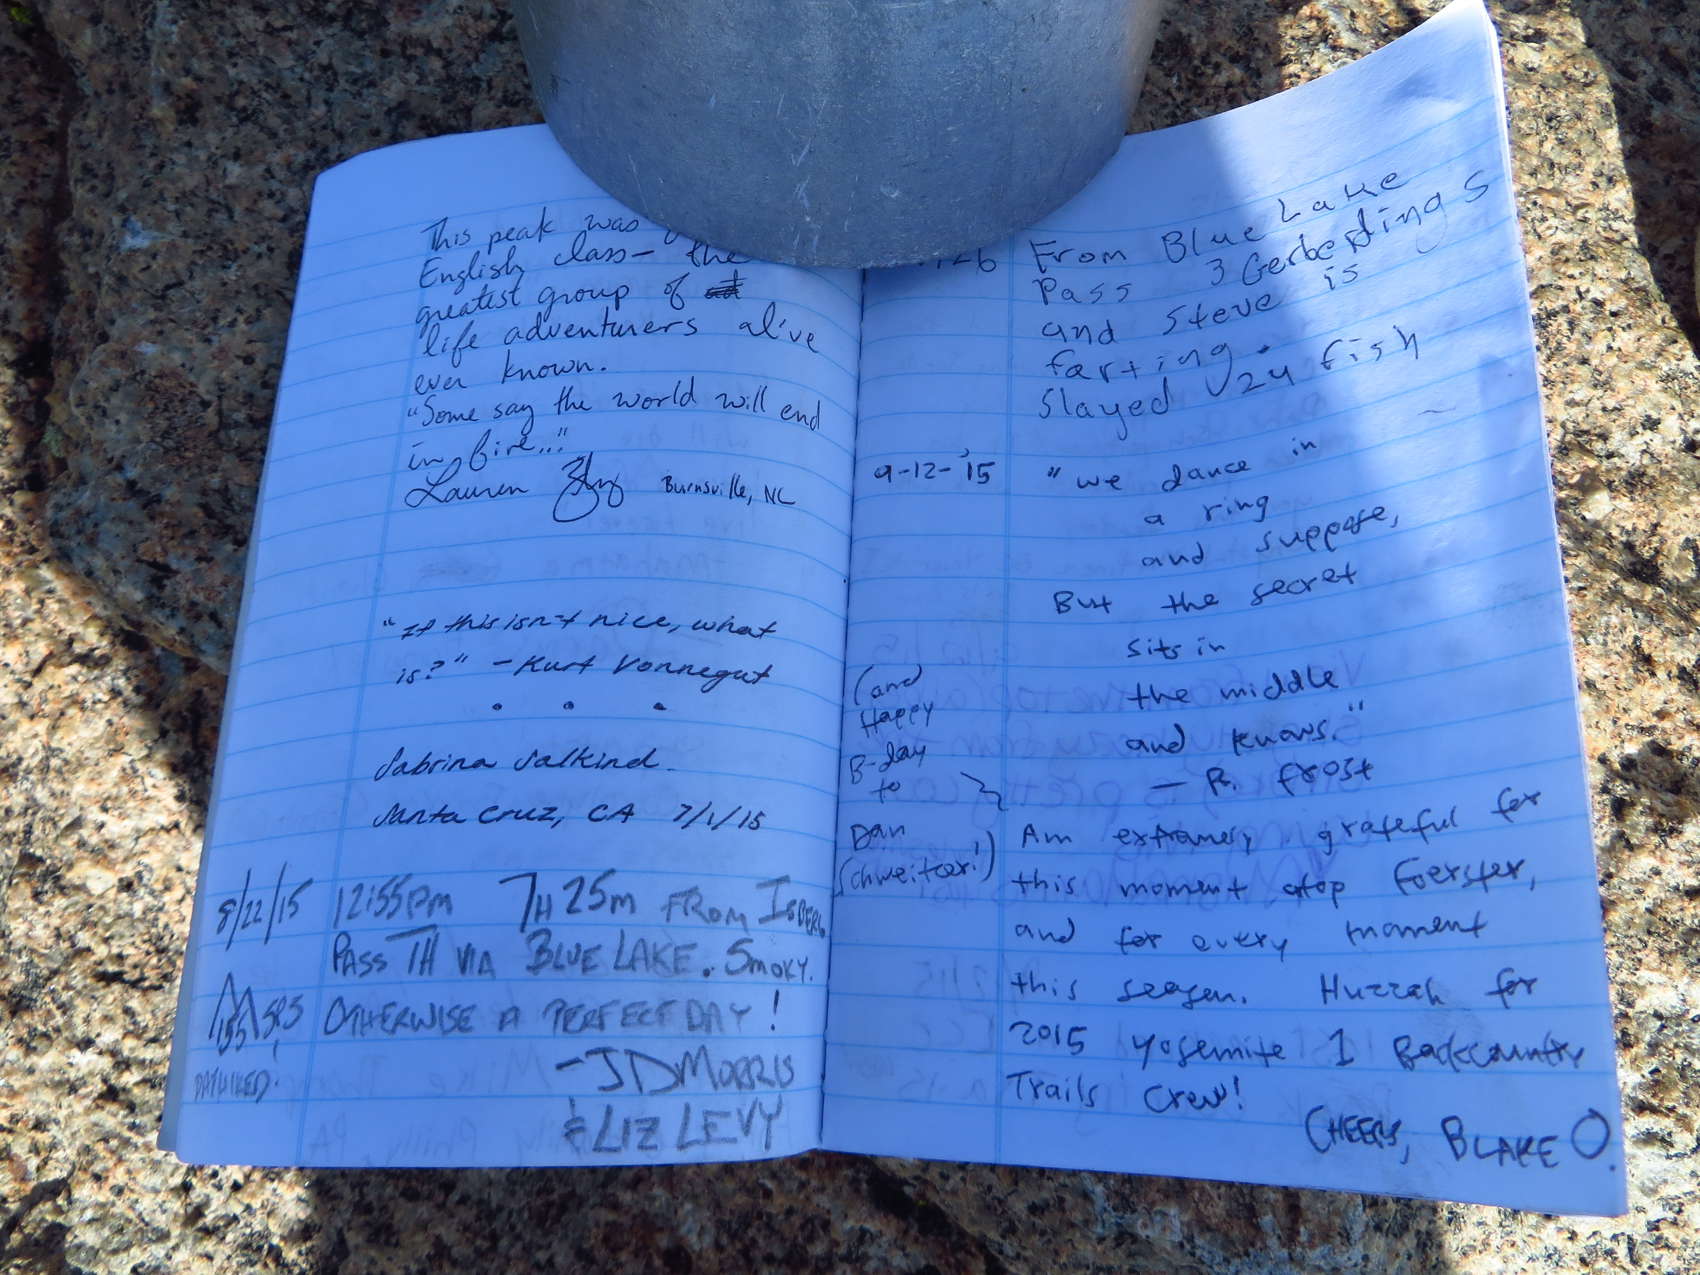 This peak was
English class- the
greatest group of
life adventurers alive
ever known.
"Some say the world will end
in fire..."
Lauren
Burnsville, NC
"If this isn't nice, what
is?" - Kurt Vonnegut
. . .
Sabrina Salkind.
Santa Cruz, CA 7/1/15
8/22/15 12:55PM 7H 25M FROM ISBERG
PASS TH VIA BLUE LAKE. SMOKY.
OTHERWISE A PERFECT DAY!
DAYHIKED.
-JD MORRIS
& LIZ LEVY
From Blue Lake
Pass 3 Gerberdings
and Steve is
farting.
Slayed 24 fish
9-12-'15 "We dance in
a ring
and suppose,
But the secret
sits in
the middle
and knows."
- R. Frost
(and
Happy
B-day
to
Dan
Schweitzer!)
Am extremely grateful for
this moment atop Foerster,
and for every moment
this season. Huzzah for
2015 Yosemite 1 Backcountry
Trails Crew!
CHEERS, BLAKE O.